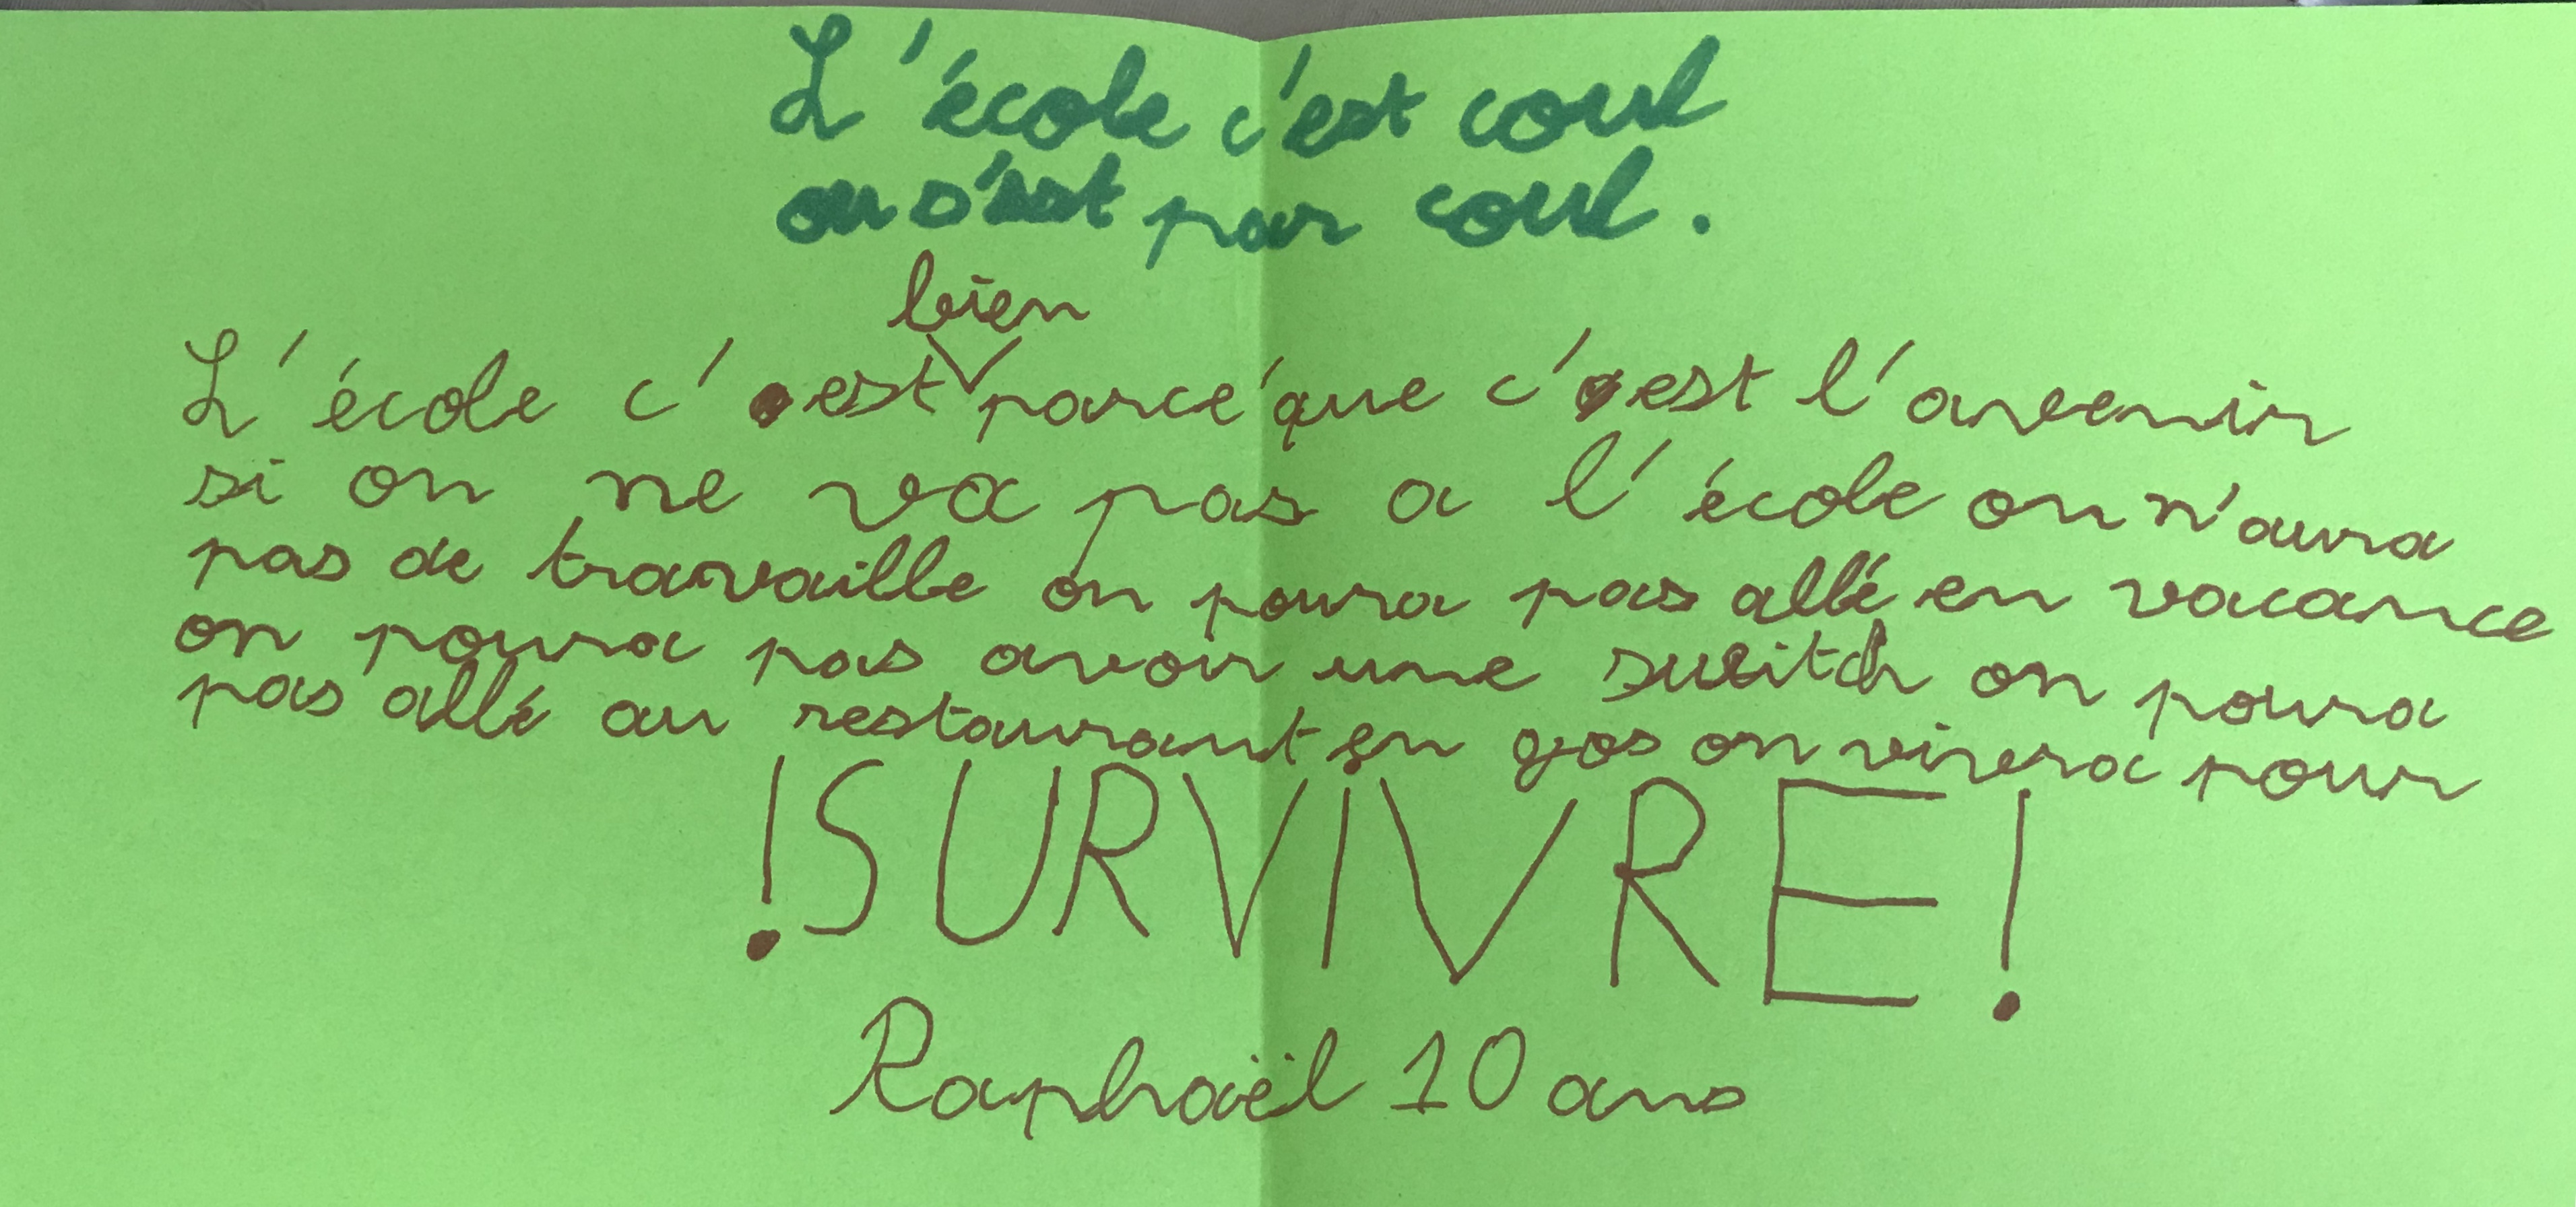 L'école c'est coul
ou s'est pour coul.
bien
L'école c'est parce'que c'est l'avenir
si on ne va pas a l'école on n'aura
pas de travaille on poura pas allé en vacance
on poura pas avoir une switch on poura
pas allé au restaurant en gros on vivera pour
!SURVIVRE!
Raphaël 10 ans